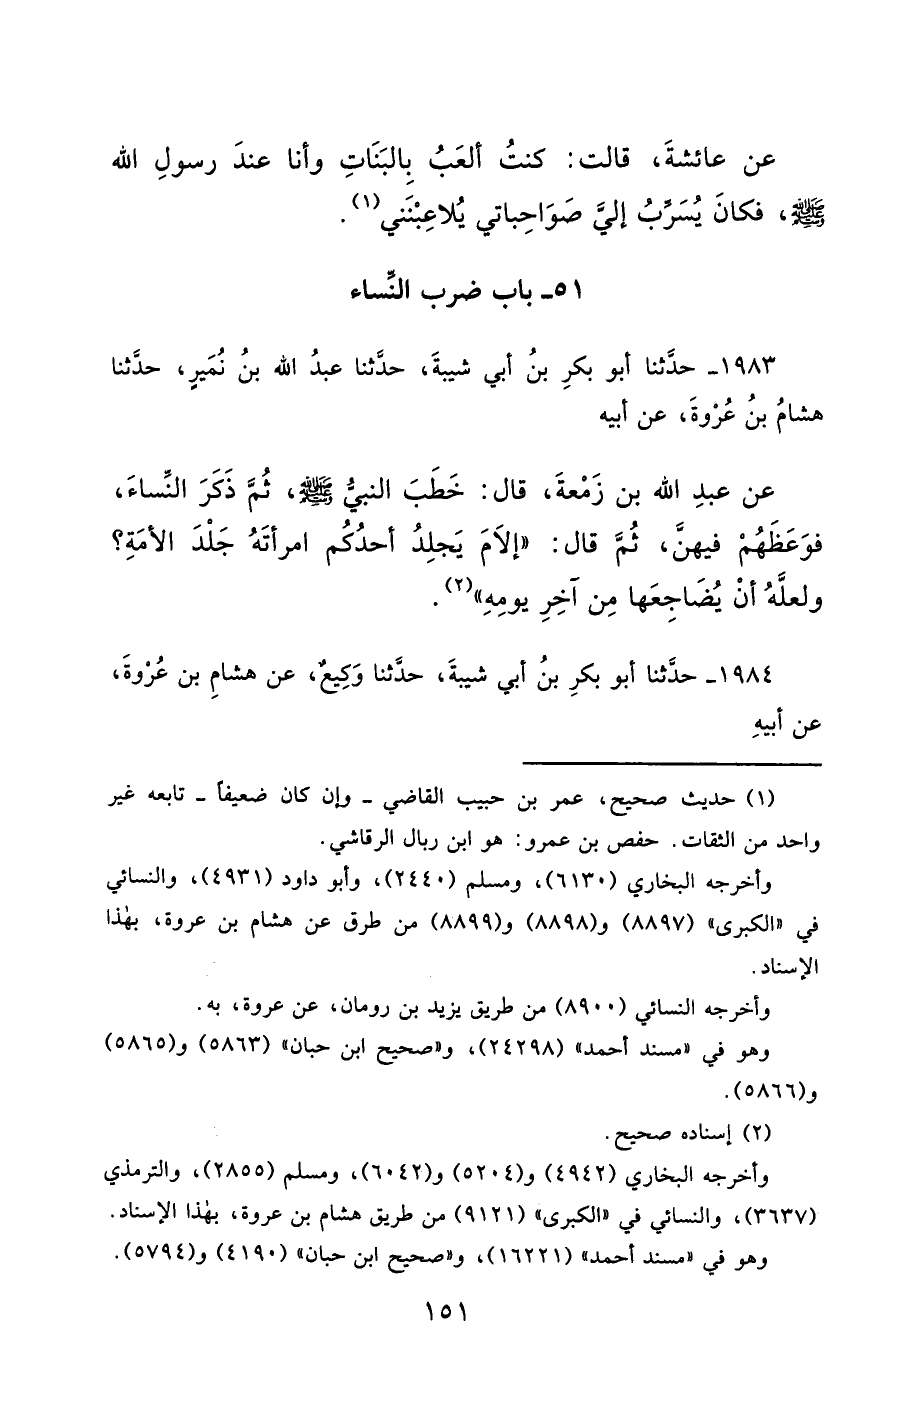 عن عائشةَ، قالت: كنتُ ألعَبُ بِالبَنَاتِ وأنا عندَ رسولِ الله
ﷺ، فكانَ يُسَرِّبُ إليَّ صَوَاحِباتي يُلاعِبْنَني(١).
٥١ـ باب ضرب النِّساء
١٩٨٣ـ حدَّثنا أبو بكرِ بنُ أبي شيبةَ، حدَّثنا عبدُ الله بنُ نُمَيرٍ، حدَّثنا
هشامُ بنُ عُرْوةَ، عن أبيه
عن عبدِ الله بن زَمْعةَ، قال: خَطَبَ النبيُّ ﷺ، ثُمَّ ذَكَرَ النِّساءَ،
فوَعَظَهُمْ فيهنَّ، ثُمَّ قال: «إلاَمَ يَجلِدُ أحدُكُم امرأتَهُ جَلْدَ الأمَةِ؟
ولعلَّهُ أنْ يُضَاجِعَها مِن آخِرِ يومِهِ»(٢).
١٩٨٤ـ حدَّثنا أبو بكرِ بنُ أبي شيبةَ، حدَّثنا وَكِيعٌ، عن هشامِ بن عُرْوةَ،
عن أبيهِ
(١) حديث صحيح، عمر بن حبيب القاضي ـ وإن كان ضعيفاً ـ تابعه غير
واحد من الثقات. حفص بن عمرو: هو ابن ربال الرقاشي.
وأخرجه البخاري (٦١٣٠)، ومسلم (٢٤٤٠)، وأبو داود (٤٩٣١)، والنسائي
في «الكبرى» (٨٨٩٧) و(٨٨٩٨) و(٨٨٩٩) من طرق عن هشام بن عروة، بهٰذا
الإسناد.
وأخرجه النسائي (٨٩٠٠) من طريق يزيد بن رومان، عن عروة، به.
وهو في «مسند أحمد» (٢٤٢٩٨)، و«صحيح ابن حبان» (٥٨٦٣) و(٥٨٦٥)
و(٥٨٦٦).
(٢) إسناده صحيح.
وأخرجه البخاري (٤٩٤٢) و(٥٢٠٤) و(٦٠٤٢)، ومسلم (٢٨٥٥)، والترمذي
(٣٦٣٧)، والنسائي في «الكبرى» (٩١٢١) من طريق هشام بن عروة، بهٰذا الإسناد.
وهو في «مسند أحمد» (١٦٢٢١)، و«صحيح ابن حبان» (٤١٩٠) و(٥٧٩٤).
١٥١